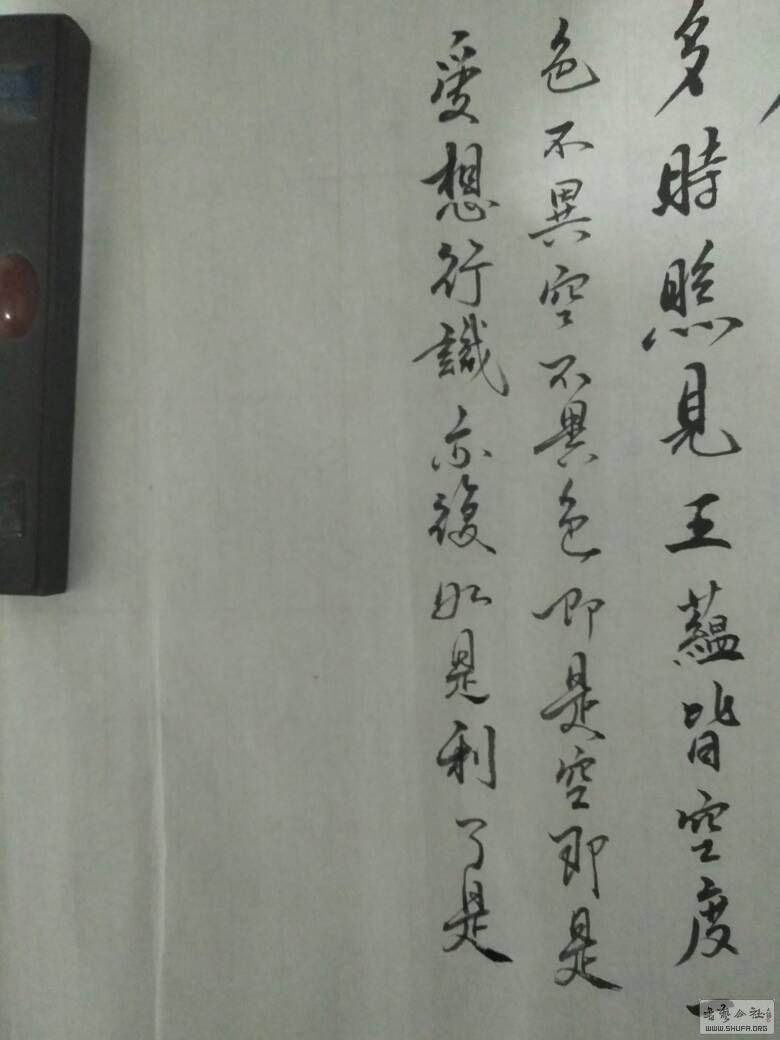 多時照見五蘊皆空度一
色不異空不異色即是空即是
受想行識亦復如是利子是
WWW.SHUFA.ORG